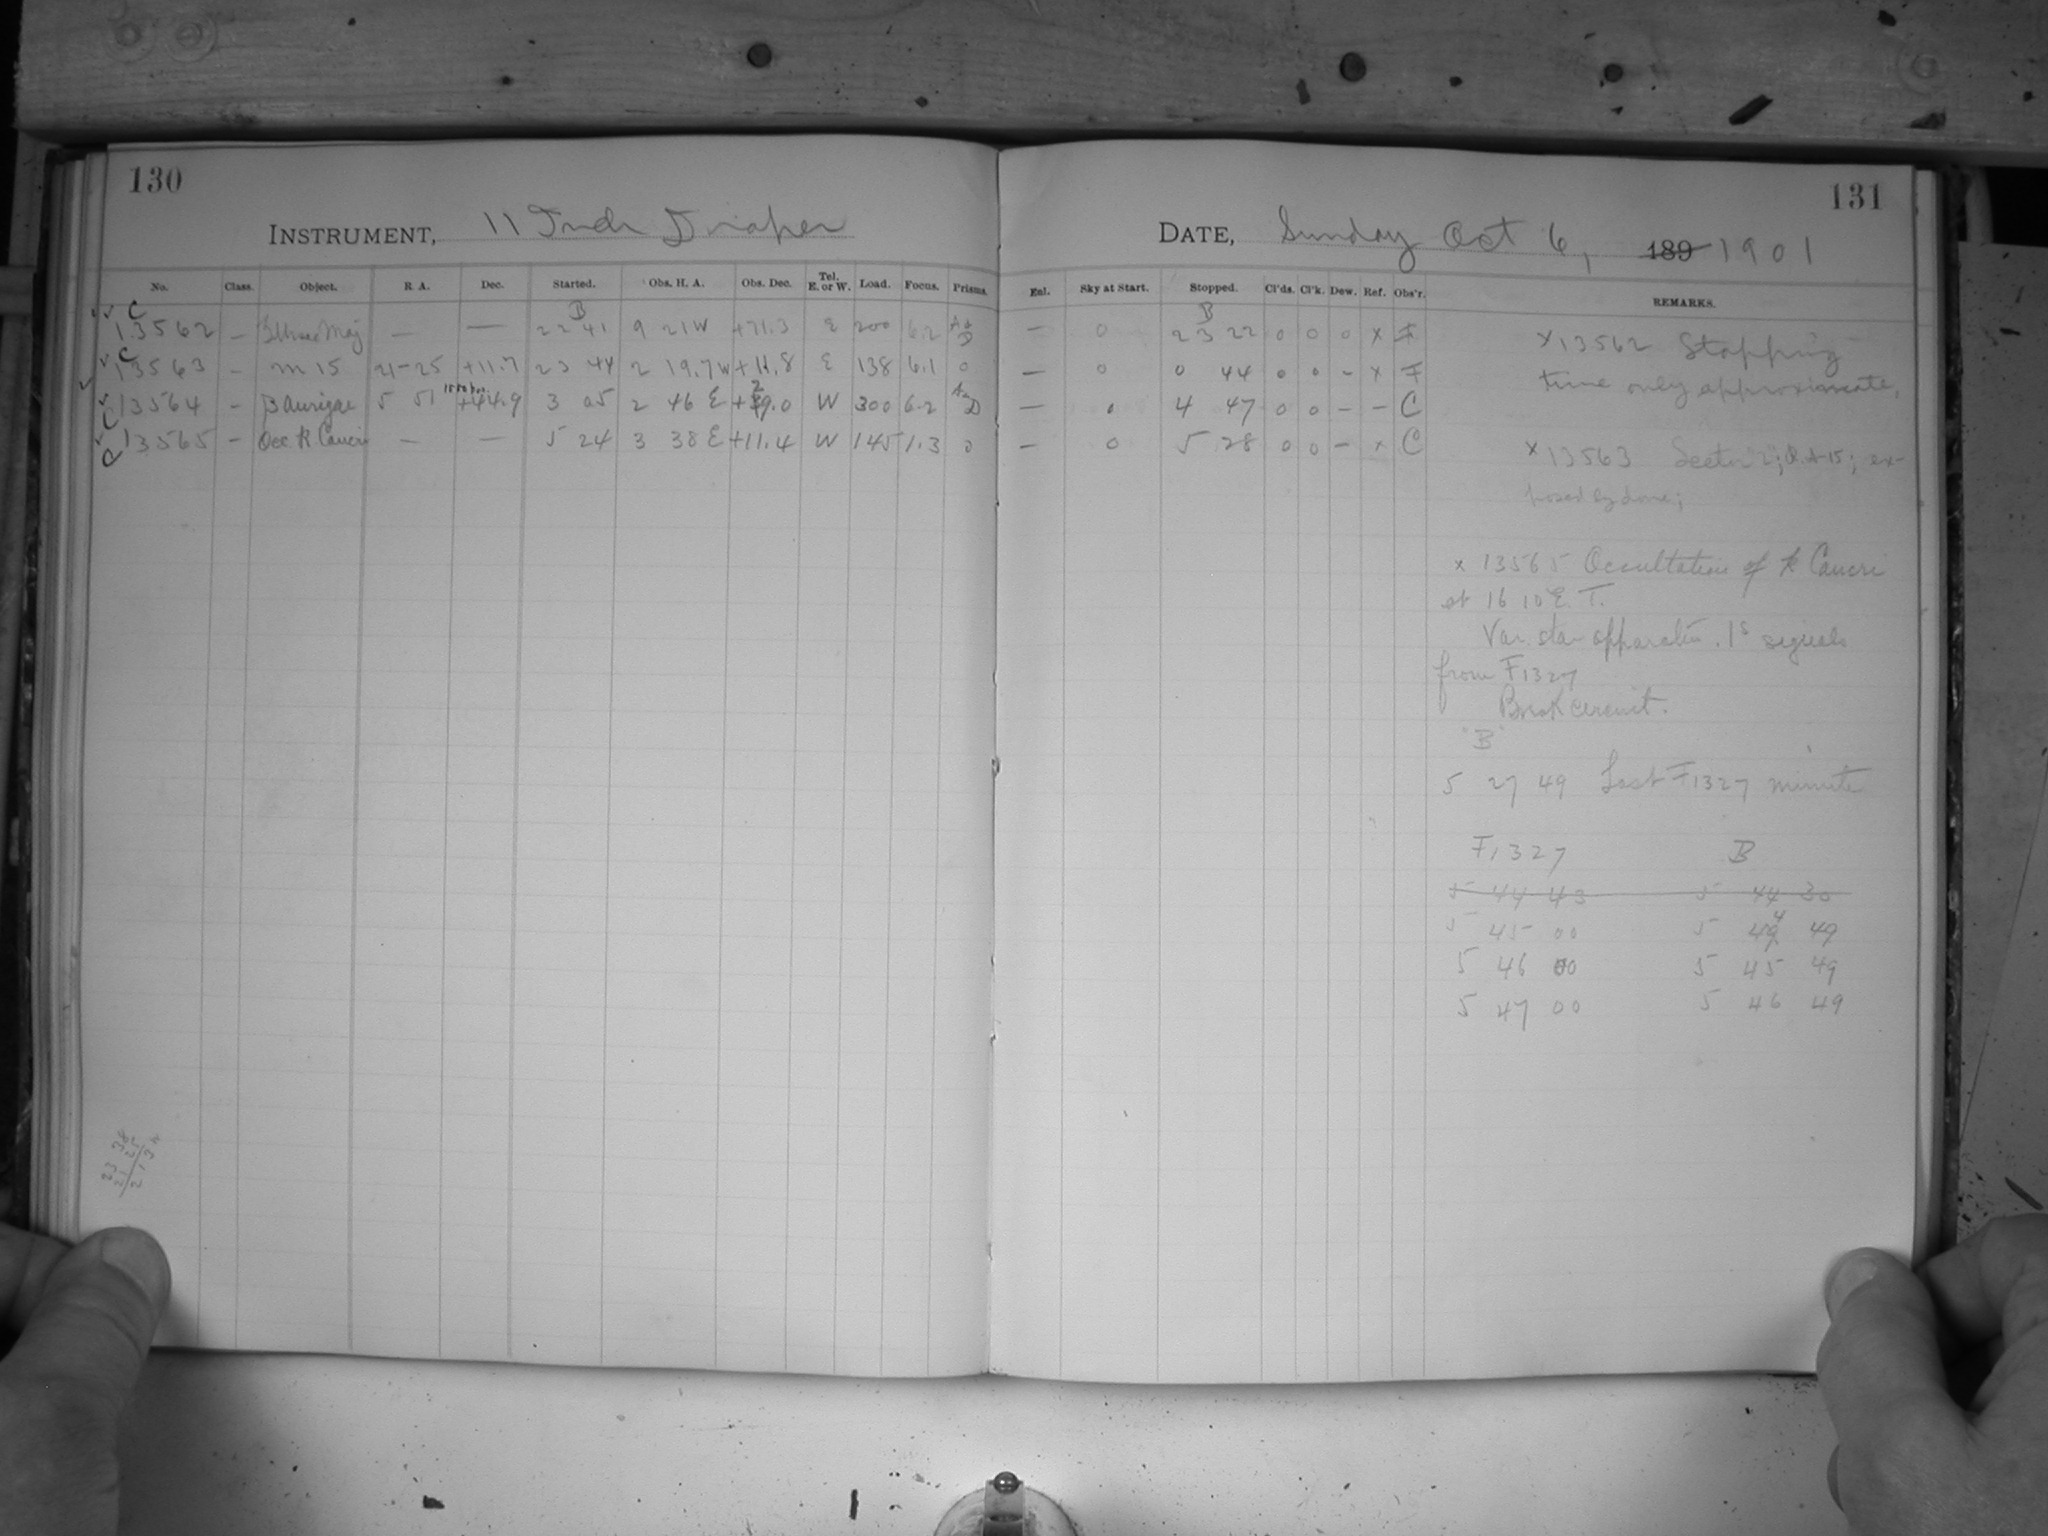 130
INSTRUMENT, 11 Inch Draper
No. Class. Object. R. A. Dec. Started. Obs. H. A. Obs. Dec. Tel. E. or W. Load. Focus. Prisms.
C B
13562 — Maj — — 22 41 9 21 W +71.3 E 200 6.2
C
13563 – m 15 21-25 +11.7 23 44 2 19.7 W +11.8 E 138 6.1 0
13564 – β Aurigae 5 51 +44.9 3 05 2 46 E W 300 6.2
C 13565 – Occ κ Cancri — — 5 24 3 38 E +11.4 W 145 1.3 0
131
DATE, Sunday Oct 6, 189 1901
Enl. Sky at Start. Stopped. Cl'ds. Cl'k. Dew. Ref. Obs'r. REMARKS.
B
— 0 23 22 0 0 0 x F
— 0 0 44 0 0 – x F
— 0 4 47 0 0 – – C
— 0 5 28 0 0 – x C
x 13562 Stopping
time only approximate.
x 13563 Sector 2; ex-
posed by dome;
x 13565 Occultation of κ Cancri
at 16 10 E. T.
Var. star apparatus. 1s signals
from F1327
Break circuit.
"B"
5 27 49 Last F1327 minute
F1327 B
5 44 43 5 44 30
5 45 00 5 44 49
5 46 00 5 45 49
5 47 00 5 46 49